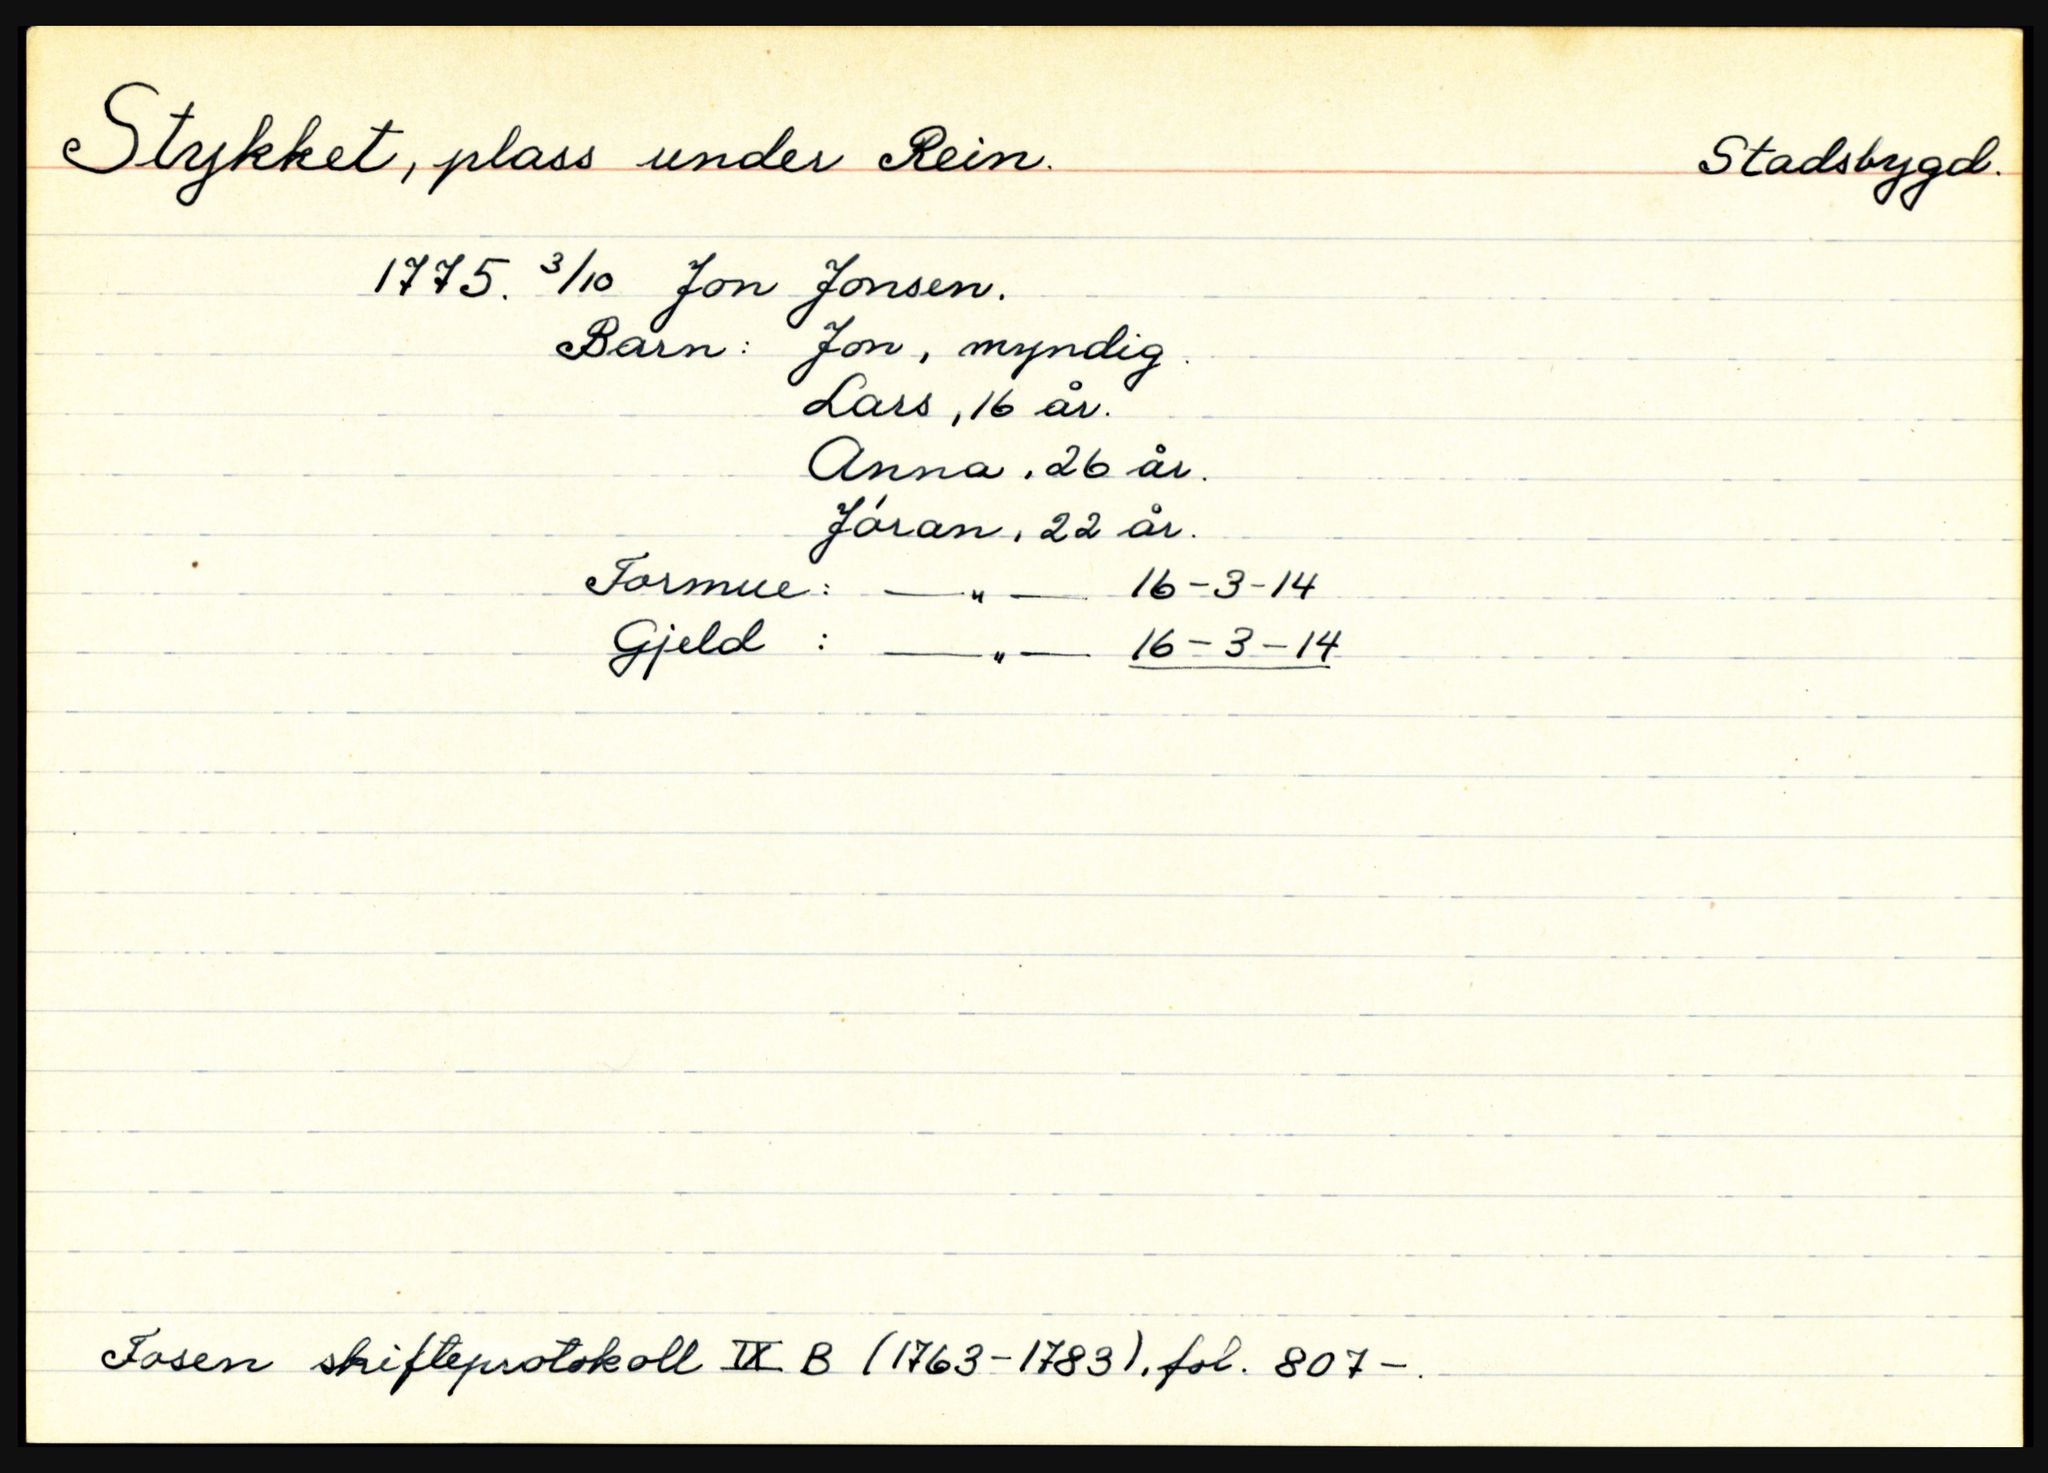 Stykket, plass under Rein. Stadsbygd.
1775. 3/10 Jon Jonsen.
Barn: Jon, myndig.
Lars, 16 år.
Anna, 26 år.
Jóran, 22 år.
Formue: —„— 16-3-14
Gjeld : —„— 16-3-14
Fosen skifteprotokoll IX B (1763-1783), fol. 807-.